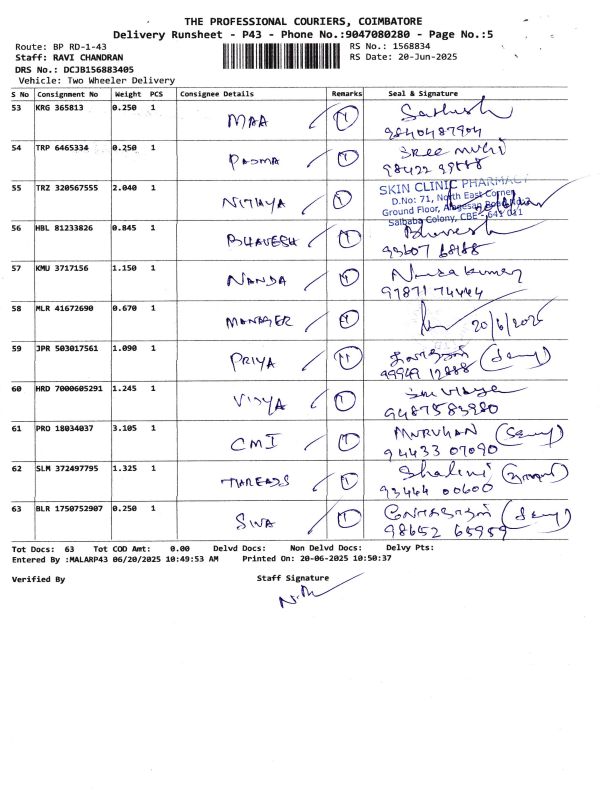 THE PROFESSIONAL COURIERS, COIMBATORE
Delivery Runsheet - P43 - Phone No.:9047080280 - Page No.:5
Route: BP RD-1-43 RS No.: 1568834
Staff: RAVI CHANDRAN RS Date: 20-Jun-2025
DRS No.: DCJB156883405
Vehicle: Two Wheeler Delivery
S No Consignment No Weight PCS Consignee Details Remarks Seal & Signature
53 KRG 365813 0.250 1 MAA Sathish
9840487904
54 TRP 6465334 0.250 1 PADMA SREE
98422
55 TRZ 320567555 2.040 1 NITHYA SKIN CLINIC PHARMACY
D.No: 71, North East Corner,
Ground Floor,
Saibaba Colony, CBE - 641 011
56 HBL 81233826 0.845 1 BHAVESH Bhavesh
93607 68188
57 KMU 3717156 1.150 1 NANDA Nandakumar
97871 74444
58 MLR 41672690 0.670 1 MANAGER 20/6/2025
59 JPR 503017561 1.090 1 PRIYA
99949 12888
60 HRD 7000605291 1.245 1 VIDYA Sri Vidya
9487583980
61 PRO 18034037 3.105 1 CMI MURUHAN
94433 07090
62 SLM 372497795 1.325 1 THREADS Shalini
93444 00600
63 BLR 1750752907 0.250 1 SIVA
98652 65959
Tot Docs: 63 Tot COD Amt: 0.00 Delvd Docs: Non Delvd Docs: Delvy Pts:
Entered By :MALARP43 06/20/2025 10:49:53 AM Printed On: 20-06-2025 10:50:37
Verified By Staff Signature